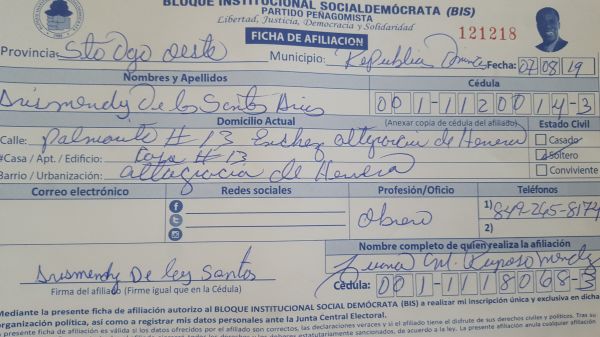 BLOQUE INSTITUCIONAL SOCIALDEMÓCRATA (BIS)
PARTIDO PEÑAGOMISTA
Libertad, Justicia, Democracia y Solidaridad
FICHA DE AFILIACION
121218
Provincia: Sto Dgo oeste Municipio: Republica Fecha: 07/08/19
Nombres y Apellidos Cédula
De los Santos 001-1120014-3
Domicilio Actual (Anexar copia de cédula del afiliado) Estado Civil
Calle: # 13 altagracia de Herrera Casado
#Casa / Apt. / Edificio: Casa # 13 Soltero
Barrio / Urbanización: altagracia de Herrera Conviviente
Correo electrónico Redes sociales Profesión/Oficio Teléfonos
Obrero 1) 849-245-8174
2)
Nombre completo de quien realiza la afiliación
Juana M.
De los Santos
Firma del afiliado (Firme igual que en la Cédula) Cédula: 001-1118068-3
Mediante la presente ficha de afiliación autorizo al BLOQUE INSTITUCIONAL SOCIAL DEMÓCRATA (BIS) a realizar mi inscripción única y exclusiva en dicha
organización política, así como a registrar mis datos personales ante la Junta Central Electoral.
La presente ficha de afiliación es válida si los datos ofrecidos por el afiliado son correctos, las declaraciones veraces y si el afiliado tiene el disfrute de sus derechos civiles y políticos. Tras su
de acuerdo a la ley. La presente afiliación anula cualquier afiliación